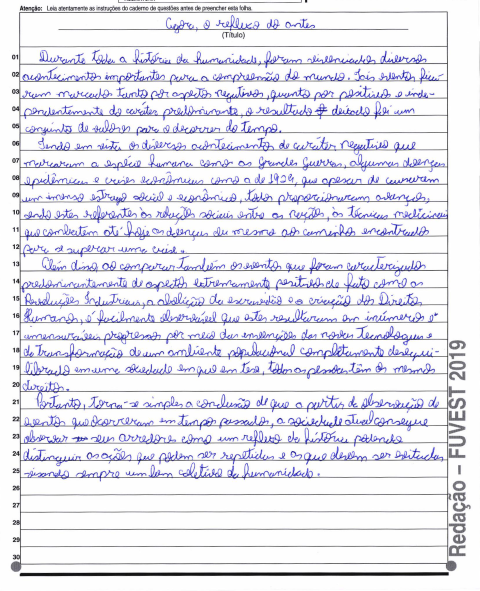 Atenção: Leia atentamente as instruções do caderno de questões antes de preencher esta folha.
Agora, o reflexo do antes
(Título)
01 Durante toda a história da humanidade, foram vivenciados diversos
02 acontecimentos importantes para a compreensão do mundo. Tais eventos fica-
03 ram marcados tanto por aspectos negativos, quanto por positivos e inde-
04 pendentemente do caráter predominante, o resultado deixado foi um
05 conjunto de valores para o decorrer do tempo.
06 Tendo em vista os diversos acontecimentos de caráter negativo que
07 marcaram a espécie humana como as Grandes Guerras, algumas doenças
08 epidêmicas e crises econômicas como a de 1929, que apesar de causarem
09 um imenso estrago social e econômico, todos proporcionaram avanços,
10 sendo estes referentes às relações sociais entre as nações, às técnicas medicinais
11 que combatem até hoje as doenças du mesmo aos caminhos encontrados
12 para se superar uma crise.
13 Além disso, ao comparar também os eventos que foram caracterizados
14 predominantemente de aspectos extremamente positivos de fato como as
15 Revoluções Industriais, a abolição da escravidão e a criação dos Direitos
16 Humanos, é facilmente observável que estes resultaram em inúmeros e
17 imensuráveis progressos por meio das invenções das novas tecnologias e
18 da transformação de um ambiente populacional completamente desequi-
19 librado em uma sociedade em que em tese, todas as pessoas têm os mesmos
20 direitos.
21 Portanto, torna-se simples a conclusão de que a partir da observação de
22 eventos que ocorreram em tempos passados, a sociedade atual consegue
23 observar seus arredores como um reflexo da história podendo
24 distinguir as ações que podem ser repetidas e as que devem ser evitadas
25 visando sempre um bem coletivo da humanidade.
26
27
28
29
30
Redação – FUVEST 2019